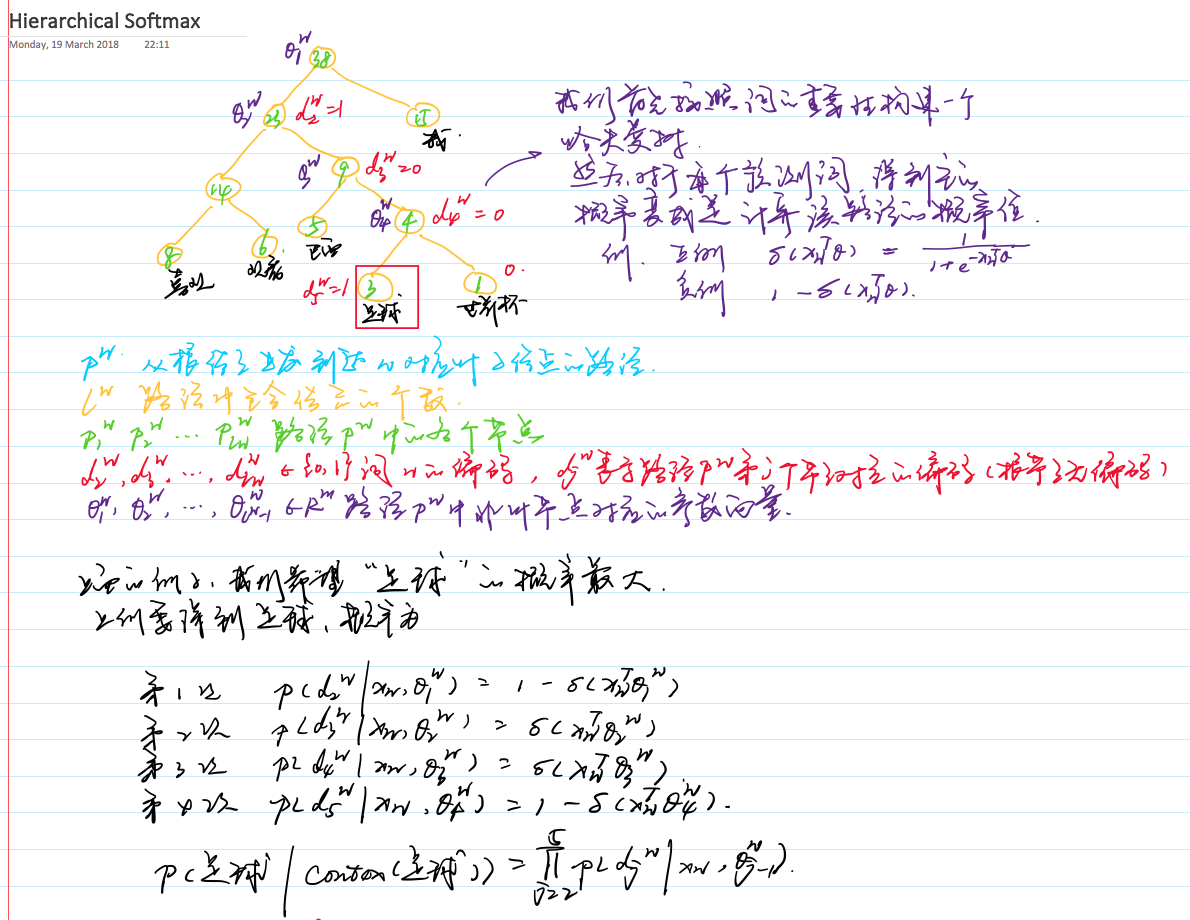 Hierarchical Softmax
Monday, 19 March 2018 22:11
θ₁ʷ 38
θ₂ʷ 23 d₂ʷ=1 15
我.
14 θ₃ʷ 9 d₃ʷ=0
8 6 5 θ₄ʷ 4 d₄ʷ=0
喜欢 观看 巴西
d₅ʷ=1 3 1 0.
足球 世界杯
我们首先按照词的重要性构建一个
哈夫曼树.
然后,对于每个预测词,得到它的
概率变成是计算该路径的概率值.
例. 正例 δ(xwᵀθ) = 1/(1+e^(-xwᵀθ))
负例 1-δ(xwᵀθ).
pʷ 从根结点出发到达w对应叶子结点的路径.
lʷ 路径中包含结点的个数.
p₁ʷ p₂ʷ … p_lwʷ 路径pʷ中的各个节点
d₂ʷ, d₃ʷ, …, d_lwʷ ∈{0,1} 词w的编码, djʷ表示路径pʷ第j个节点对应的编码(根节点无编码)
θ₁ʷ, θ₂ʷ, …, θ_lw-1ʷ ∈Rᵐ 路径pʷ中非叶节点对应的参数向量.
上面的例子,我们希望“足球”的概率最大.
上例要得到足球,概率为
第1次 p(d₂ʷ|xw,θ₁ʷ) = 1-δ(xwᵀθ₁ʷ)
第2次 p(d₃ʷ|xw,θ₂ʷ) = δ(xwᵀθ₂ʷ)
第3次 p(d₄ʷ|xw,θ₃ʷ) = δ(xwᵀθ₃ʷ).
第4次 p(d₅ʷ|xw,θ₄ʷ) = 1-δ(xwᵀθ₄ʷ).
p(足球|Contex(足球)) = ∏_{j=2}^{5} p(djʷ|xw,θj-1ʷ).